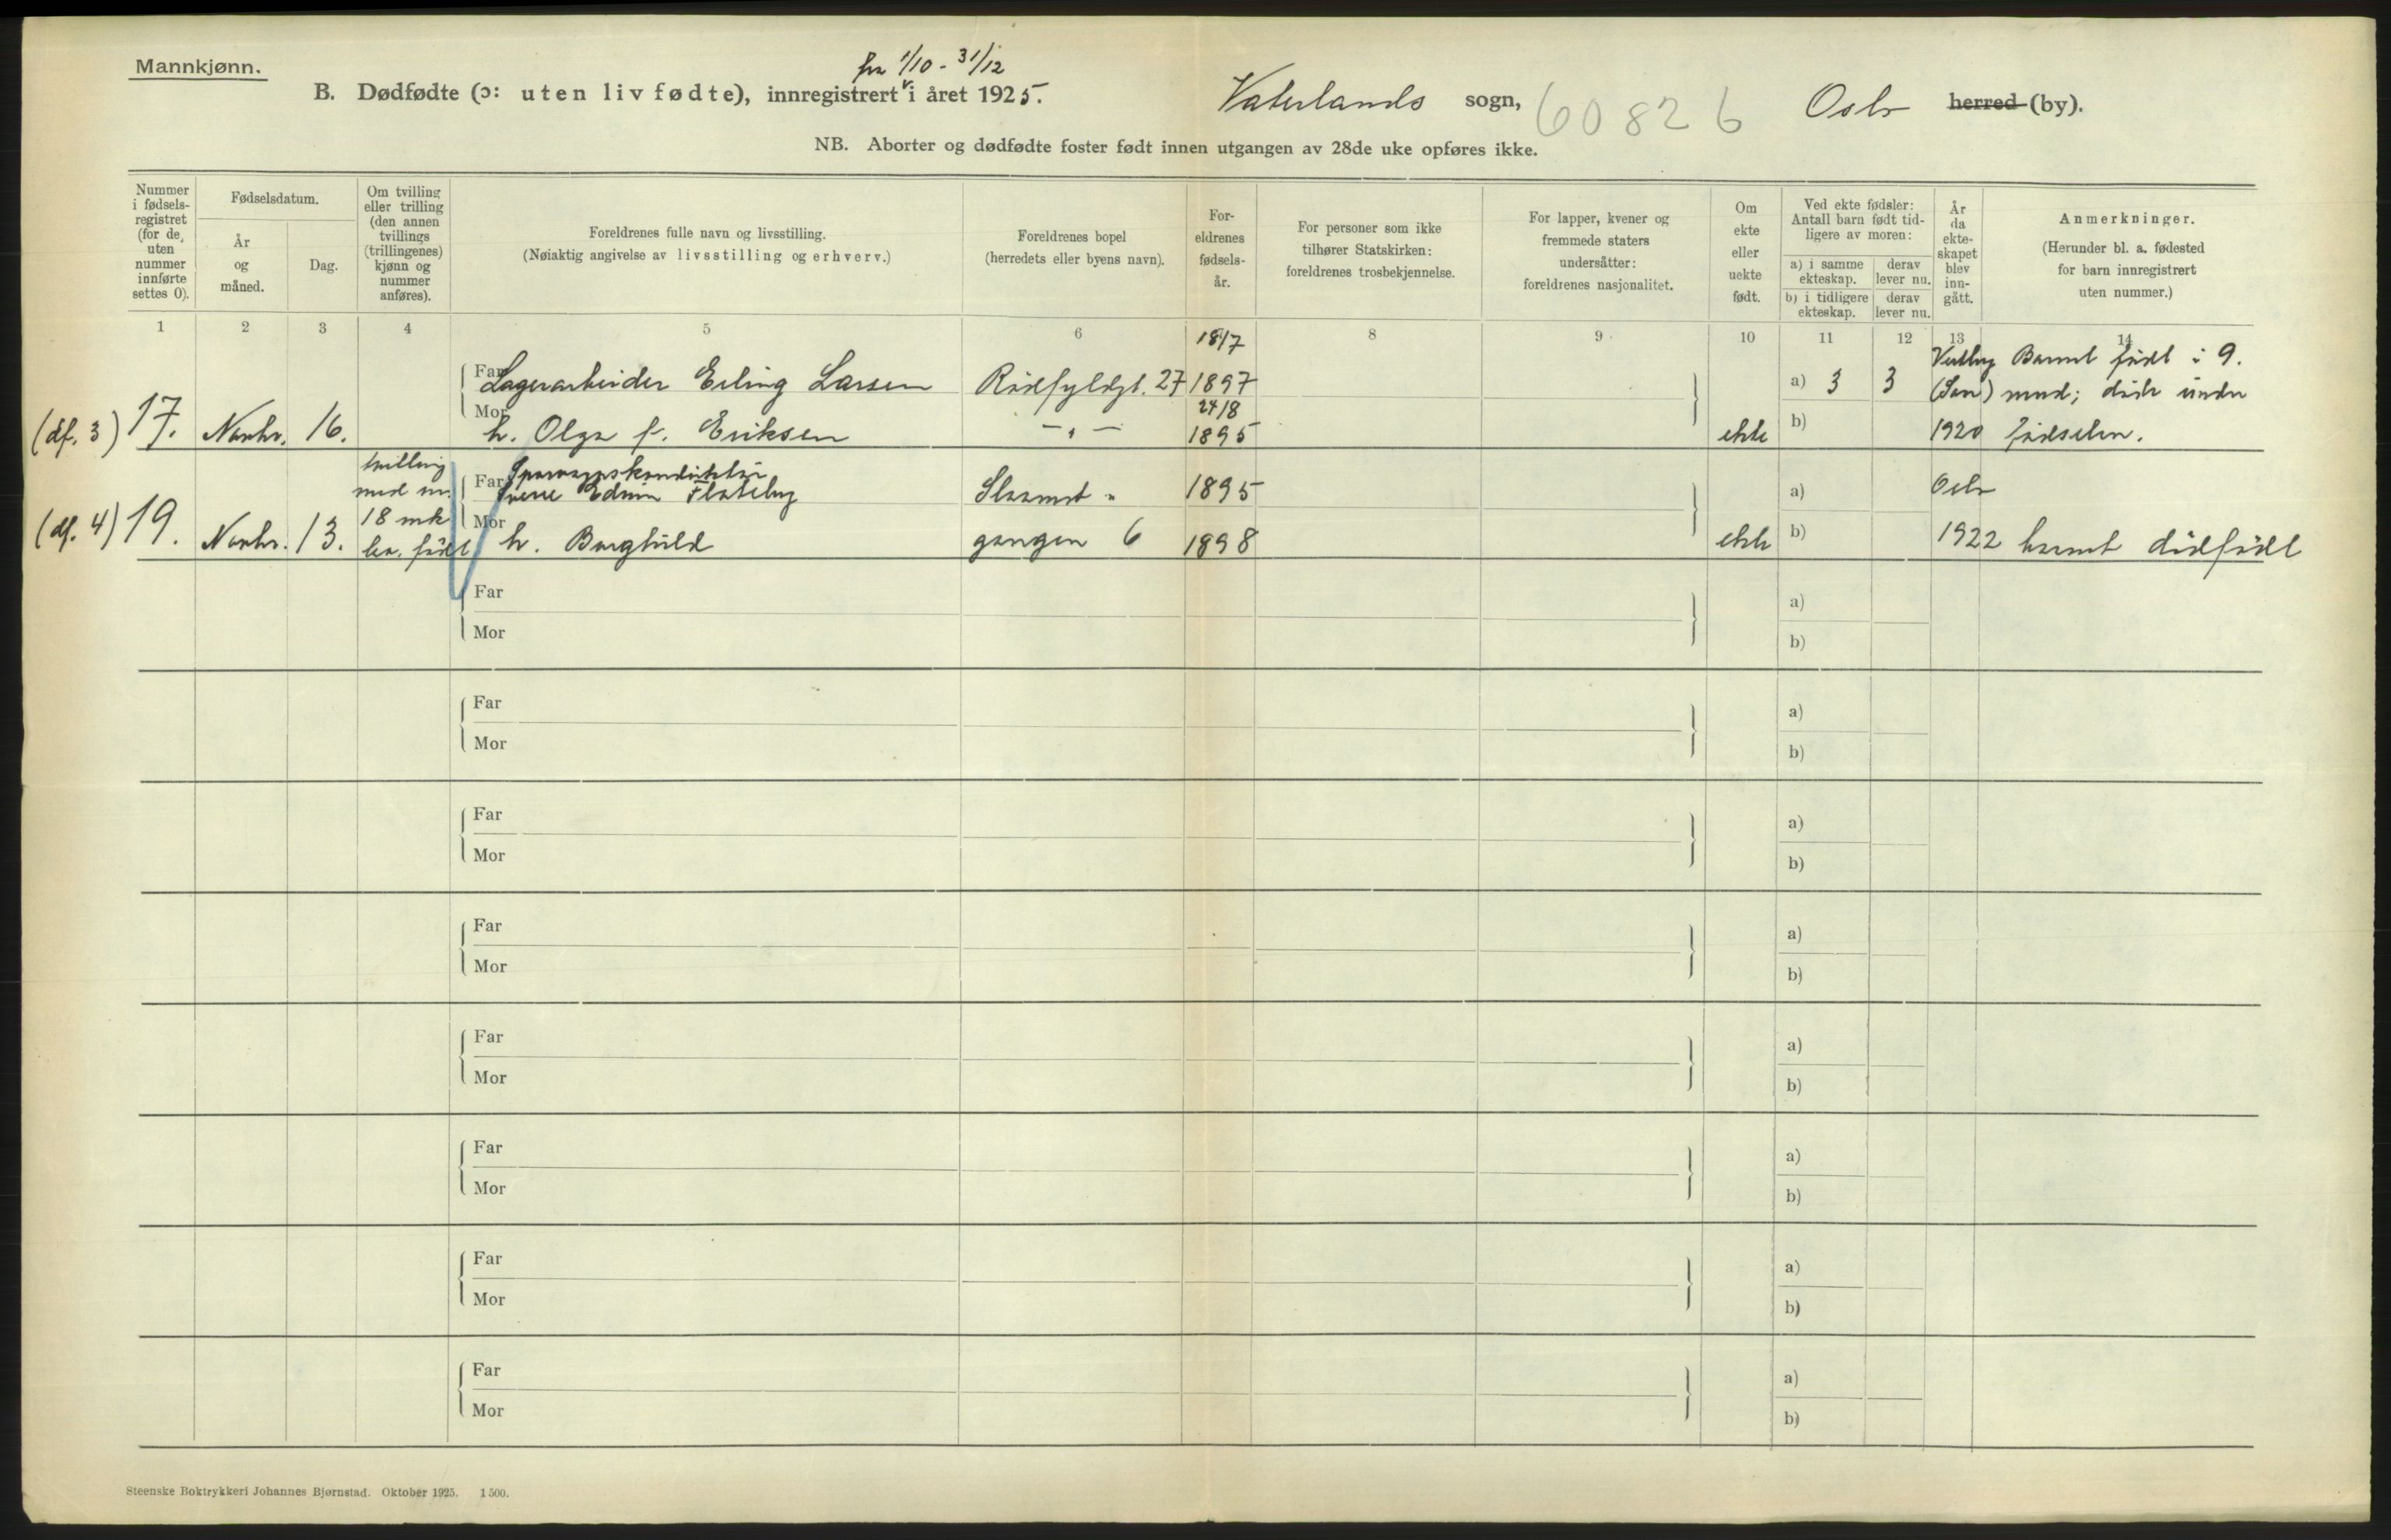 Mannkjønn.
fra 1/10 - 31/12
B. Dødfødte (ɔ: uten liv fødte), innregistrert i året 1925. Vaterlands sogn, 60826 Oslo herred (by).
NB. Aborter og dødfødte foster født innen utgangen av 28de uke opføres ikke.
Nummer i fødsels-registret (for de uten nummer innførte settes 0).
Fødselsdatum.
År og måned.
Dag.
Om tvilling eller trilling (den annen tvillings (trillingenes) kjønn og nummer anføres).
Foreldrenes fulle navn og livsstilling.
(Nøiaktig angivelse av livsstilling og erhverv.)
Foreldrenes bopel
(herredets eller byens navn).
For-eldrenes fødsels-år.
For personer som ikke tilhører Statskirken: foreldrenes trosbekjennelse.
For lapper, kvener og fremmede staters undersåtter: foreldrenes nasjonalitet.
Om ekte eller uekte født.
Ved ekte fødsler: Antall barn født tid-ligere av moren:
a) i samme ekteskap.
derav lever nu.
b) i tidligere ekteskap.
derav lever nu.
År da ekte-skapet blev inn-gått.
Anmerkninger.
(Herunder bl. a. fødested for barn innregistrert uten nummer.)
1 2 3 4 5 6 8 9 10 11 12 13 14
18/7
Far Lagerarbeider Erling Larsen Rødfyldgt. 27 1897 a) 3 3 Vestby (Søn) Barnet født i 9. mnd; døde under
24/8
(df. 3) 17. Novbr. 16. Mor h. Olga f. Eriksen — " — 1895 ekte b) 1920 fødselen.
tvilling med nr. 18 mk lev. født
Far Sporvognskonduktør
Sverre Edvin Flateby Staamst - 1895 a) Oslo
(df. 4) 19. Novbr. 13. Mor h. Borghild gangen 6 1898 ekte b) 1922 barnet dødfødt
Far a)
Mor b)
Far a)
Mor b)
Far a)
Mor b)
Far a)
Mor b)
Far a)
Mor b)
Far a)
Mor b)
Far a)
Mor b)
Far a)
Mor b)
Steenske Boktrykkeri Johannes Bjørnstad. Oktober 1925. 1500.